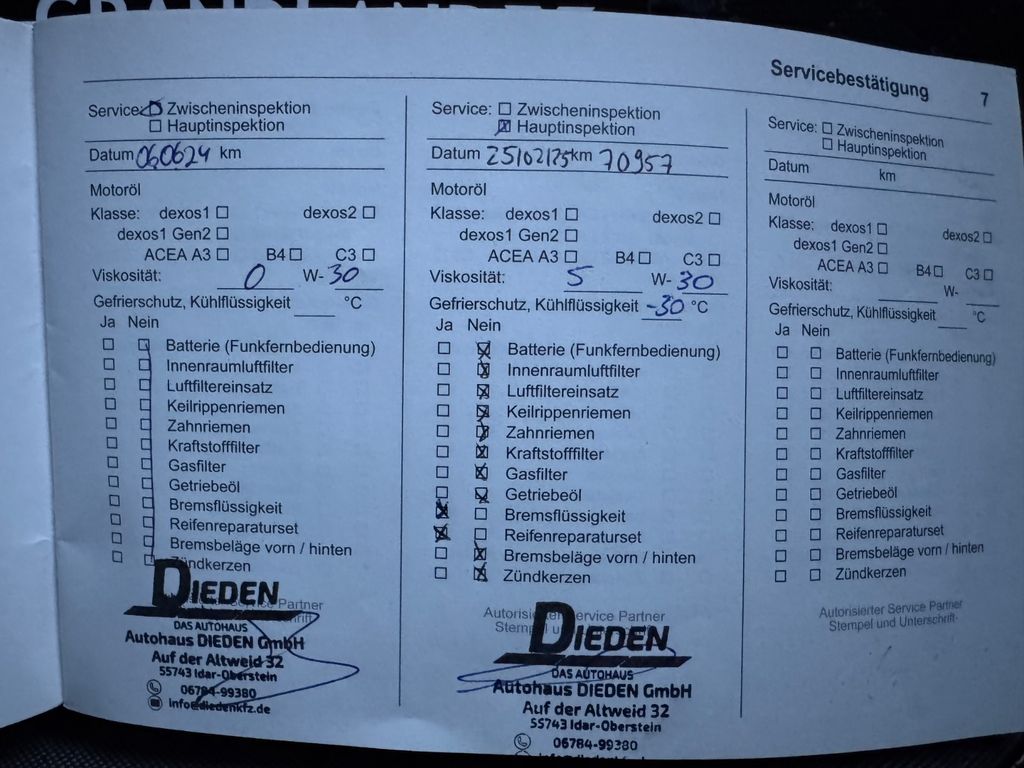 GRANDLAND X
Servicebestätigung 7
Service: Zwischeninspektion
Hauptinspektion
Datum 060624 km
Motoröl
Klasse: dexos1 dexos2
dexos1 Gen2
ACEA A3 B4 C3
Viskosität: 0 W-30
Gefrierschutz, Kühlflüssigkeit °C
Ja Nein
Batterie (Funkfernbedienung)
Innenraumluftfilter
Luftfiltereinsatz
Keilrippenriemen
Zahnriemen
Kraftstofffilter
Gasfilter
Getriebeöl
Bremsflüssigkeit
Reifenreparaturset
Bremsbeläge vorn / hinten
Zündkerzen
Service Partner
DIEDEN
DAS AUTOHAUS
Autohaus DIEDEN GmbH
Auf der Altweid 32
55743 Idar-Oberstein
06784-99380
info@diedenkfz.de
Service: Zwischeninspektion
Hauptinspektion
Datum 25102125 km 70957
Motoröl
Klasse: dexos1 dexos2
dexos1 Gen2
ACEA A3 B4 C3
Viskosität: 5 W-30
Gefrierschutz, Kühlflüssigkeit -30 °C
Ja Nein
Batterie (Funkfernbedienung)
Innenraumluftfilter
Luftfiltereinsatz
Keilrippenriemen
Zahnriemen
Kraftstofffilter
Gasfilter
Getriebeöl
Bremsflüssigkeit
Reifenreparaturset
Bremsbeläge vorn / hinten
Zündkerzen
Autorisierter Service Partner
Stempel
DIEDEN
DAS AUTOHAUS
Autohaus DIEDEN GmbH
Auf der Altweid 32
55743 Idar-Oberstein
06784-99380
Service: Zwischeninspektion
Hauptinspektion
Datum km
Motoröl
Klasse: dexos1 dexos2
dexos1 Gen2
ACEA A3 B4 C3
Viskosität: W-
Gefrierschutz, Kühlflüssigkeit °C
Ja Nein
Batterie (Funkfernbedienung)
Innenraumluftfilter
Luftfiltereinsatz
Keilrippenriemen
Zahnriemen
Kraftstofffilter
Gasfilter
Getriebeöl
Bremsflüssigkeit
Reifenreparaturset
Bremsbeläge vorn / hinten
Zündkerzen
Autorisierter Service Partner
Stempel und Unterschrift